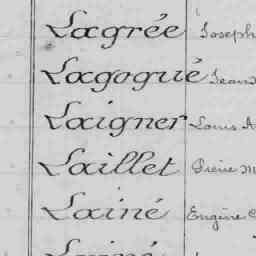 Lagrée Joseph
Lagogué Jean
Laigner Louis A
Laillet Pierre M
Lainé Eugène
Lainé